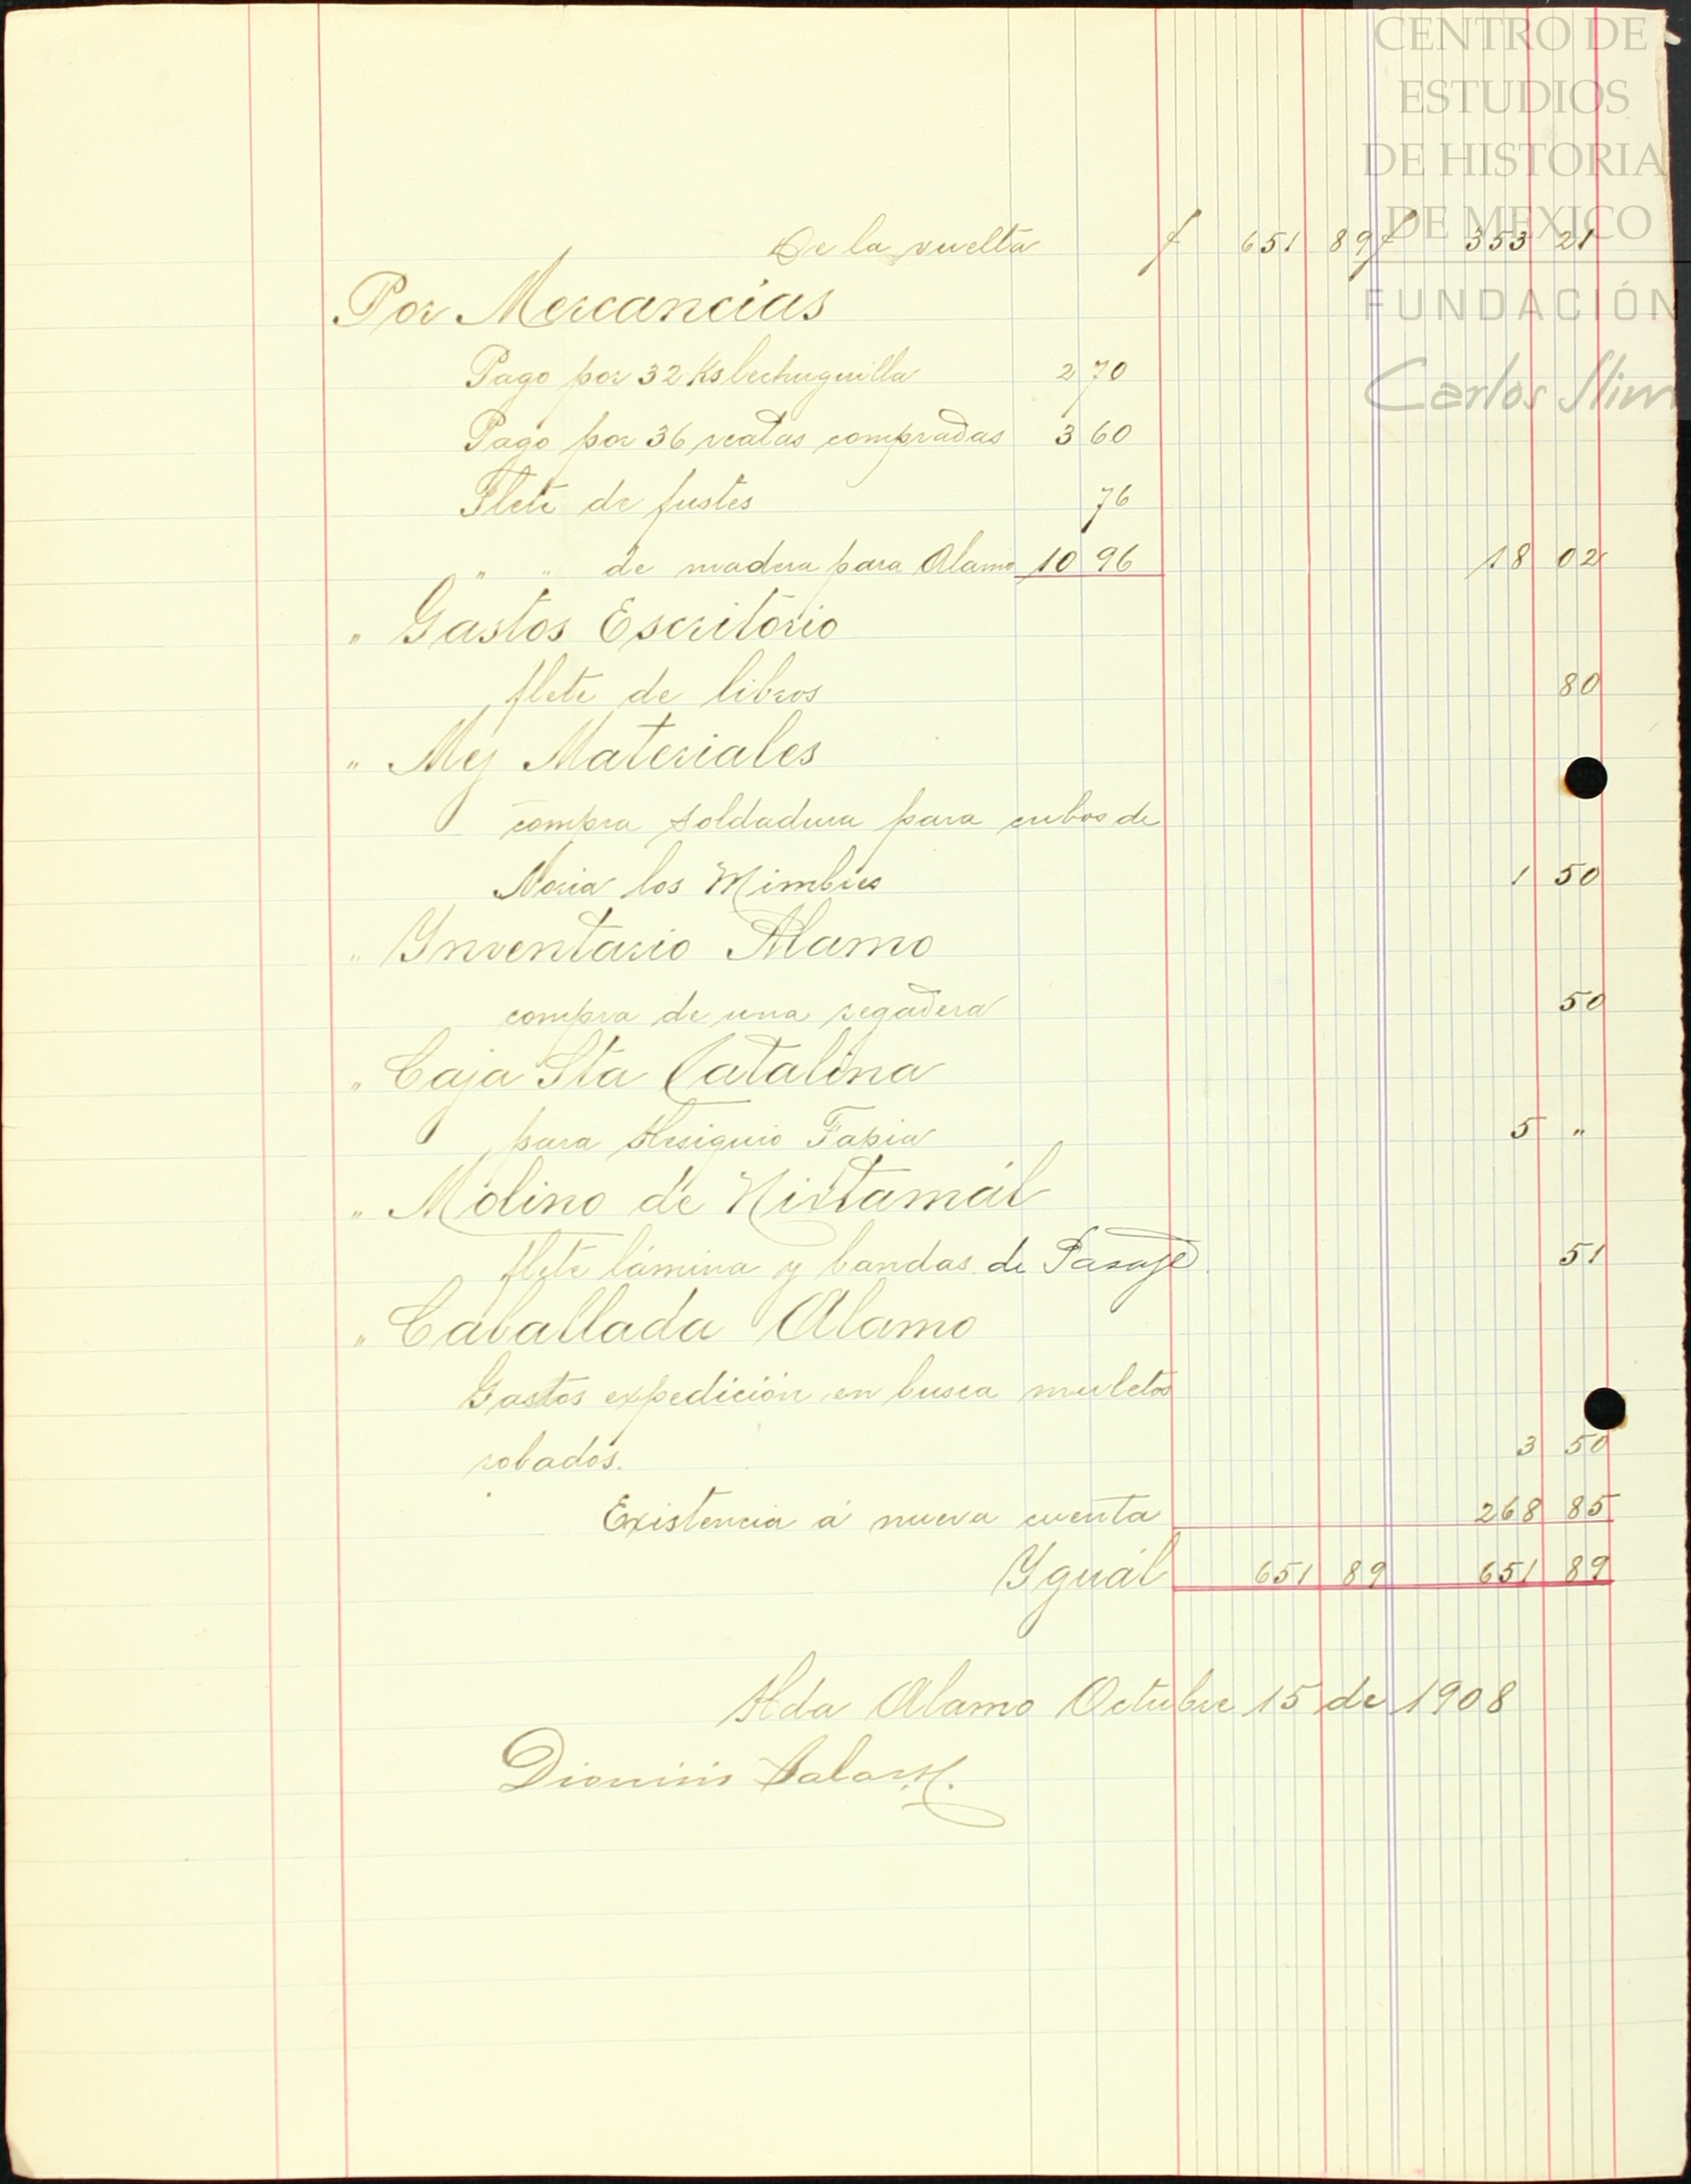 CENTRO DE
ESTUDIOS
DE HISTORIA
DE MEXICO
FUNDACIÓN
Carlos Slim
De la vuelta $ 651 89 $ 353 21
Por Mercancias
Pago por 32 Ks lechuguilla 2 70
Pago por 36 reatas compradas 3 60
Flete de fustes 76
" " de madera para Alamo 10 96 18 02
" Gastos Escritorio
flete de libros 80
" Mej Materiales
compra soldadura para cubos de
Noria los Mimbres 1 50
" Ynventario Alamo
compra de una regadera 50
" Caja Sta Catalina
para Hesiquio Tapia 5 "
" Molino de Nixtamál
flete lámina y bandas de Pasaje 51
" Caballada Alamo
Gastos expedición en busca muletos
robados. 3 50
Existencia á nueva cuenta 268 85
Yguál 651 89 651 89
Hda Alamo Octubre 15 de 1908
Dionisio Salas H.